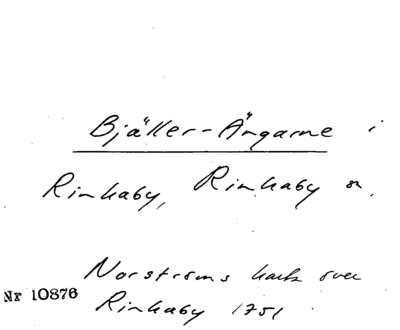 Bjäller-Ängarne i
Rinkaby, Rinkaby sn.
Norströms karta över
Nr 10876
Rinkaby 1751